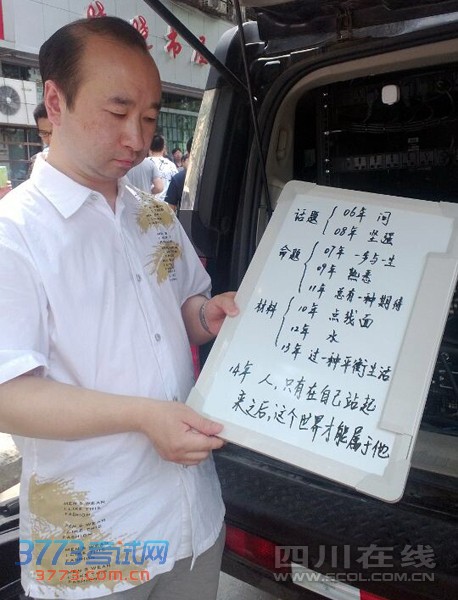 话题 { 06年 问
08年 坚强
命题 { 07年 一步与一生
09年 熟悉
11年 总有一种期待
材料 { 10年 点线面
12年 水
13年 过一种平衡生活
14年 人，只有在自己站起
来之后，这个世界才能属于他
MEN'S WEAR
I LIKE THIS
FASHION
3773考试网
3773.com.cn
四川在线
WWW.SCOL.COM.CN